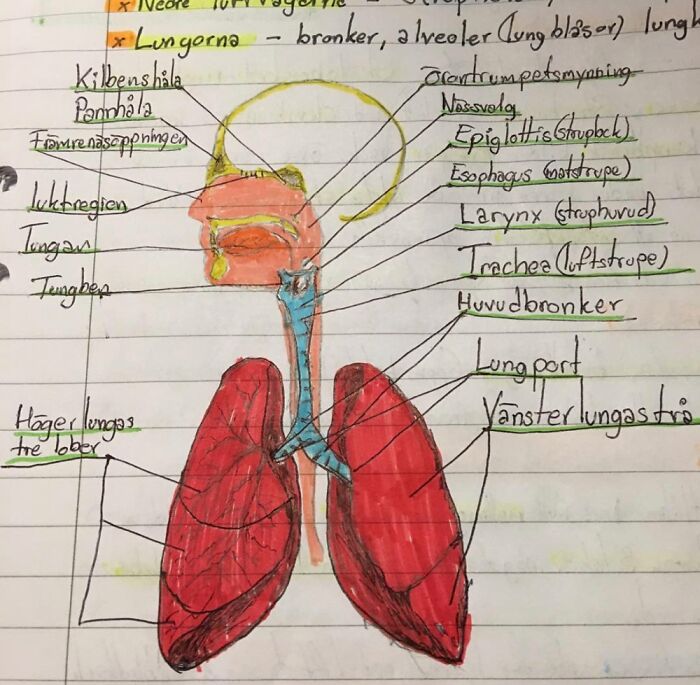 x Nedre luftvägarna -
x Lungorna - bronker, alveoler (lungblåsor)
Kilbenshåla
Pannhåla
Främrenäsöppningen
luktregien
Tungan
Tungben
Örontrumpetsmynning
Nässvalg
Epiglottis (struplock)
Esophagus (matstrupe)
Larynx (struphuvud)
Trachea (luftstrupe)
Huvudbronker
Lungport
Vänster lungas två
Höger lungas
tre lober